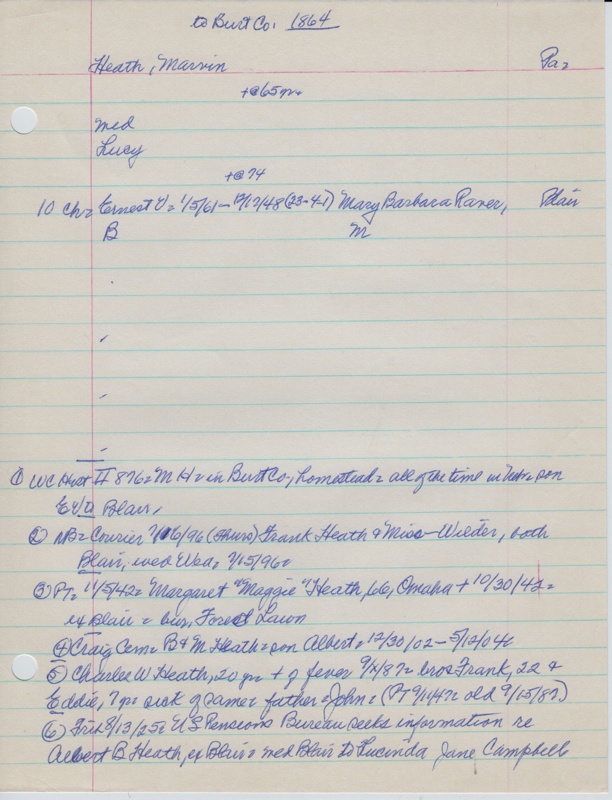 to Burt Co. 1864
Heath, Marvin Pa=
+@65 yr.
med
Lucy
+@74
10 ch= Ernest V= 1/5/61 - 12/17/48 (23-4-1) Mary Barbara Raver, Blair
B M
① WC Hist II 876= M H= in Burt Co, homestead= all of the time in Nebr= son
EV @ Blair,
② NB= Courier 7/16/96 (Thurs) Frank Heath & Miss - Wilder, both
Blair, wed Wed= 7/15/96=
③ PT= 11/5/42= Margaret "Maggie" Heath, 66, Omaha + 10/30/42=
ex Blair = bur, Forest Lawn
④ Craig Cem= B & M Heath= son Albert= 12/30/02 - 5/12/04
⑤ Charles W Heath, 20 yr= + of fever 9/ /87= bro= Frank, 22 &
Eddie, 7 yr= sick of same= father= John= (PT old 9/15/87)
⑥ Fri= 8/13/25= US Pensions Bureau seeks information re
Albert B Heath, ex Blair= med Blair to Lucinda Jane Campbell